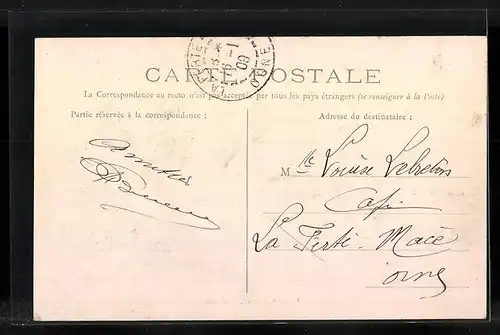 CARTE POSTALE
La Correspondance au recto n'est pas acceptée par tous les pays étrangers (se renseigner à la Poste)
Partie réservée à la correspondance :
Adresse du destinataire :
Amitiés
Mlle Louise Lebreton
Café
La Ferté-Macé
Orne